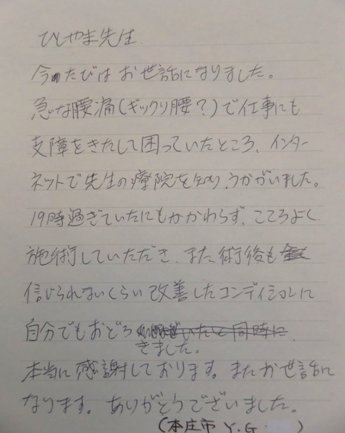 ひしやま先生
今のたびはお世話になりました。
急な腰痛(ギックリ腰?)で仕事にも
支障をきたして困っていたところ、インター
ネットで先生の療院を知り、うかがいました。
19時過ぎていたにもかかわらず、こころよく
施術していただき、また術後も
信じられないくらい改善したコンディションに
自分でもおどろ
きました。
本当に感謝しております。またお世話に
なります。ありがとうございました。
(本庄市 Y.G